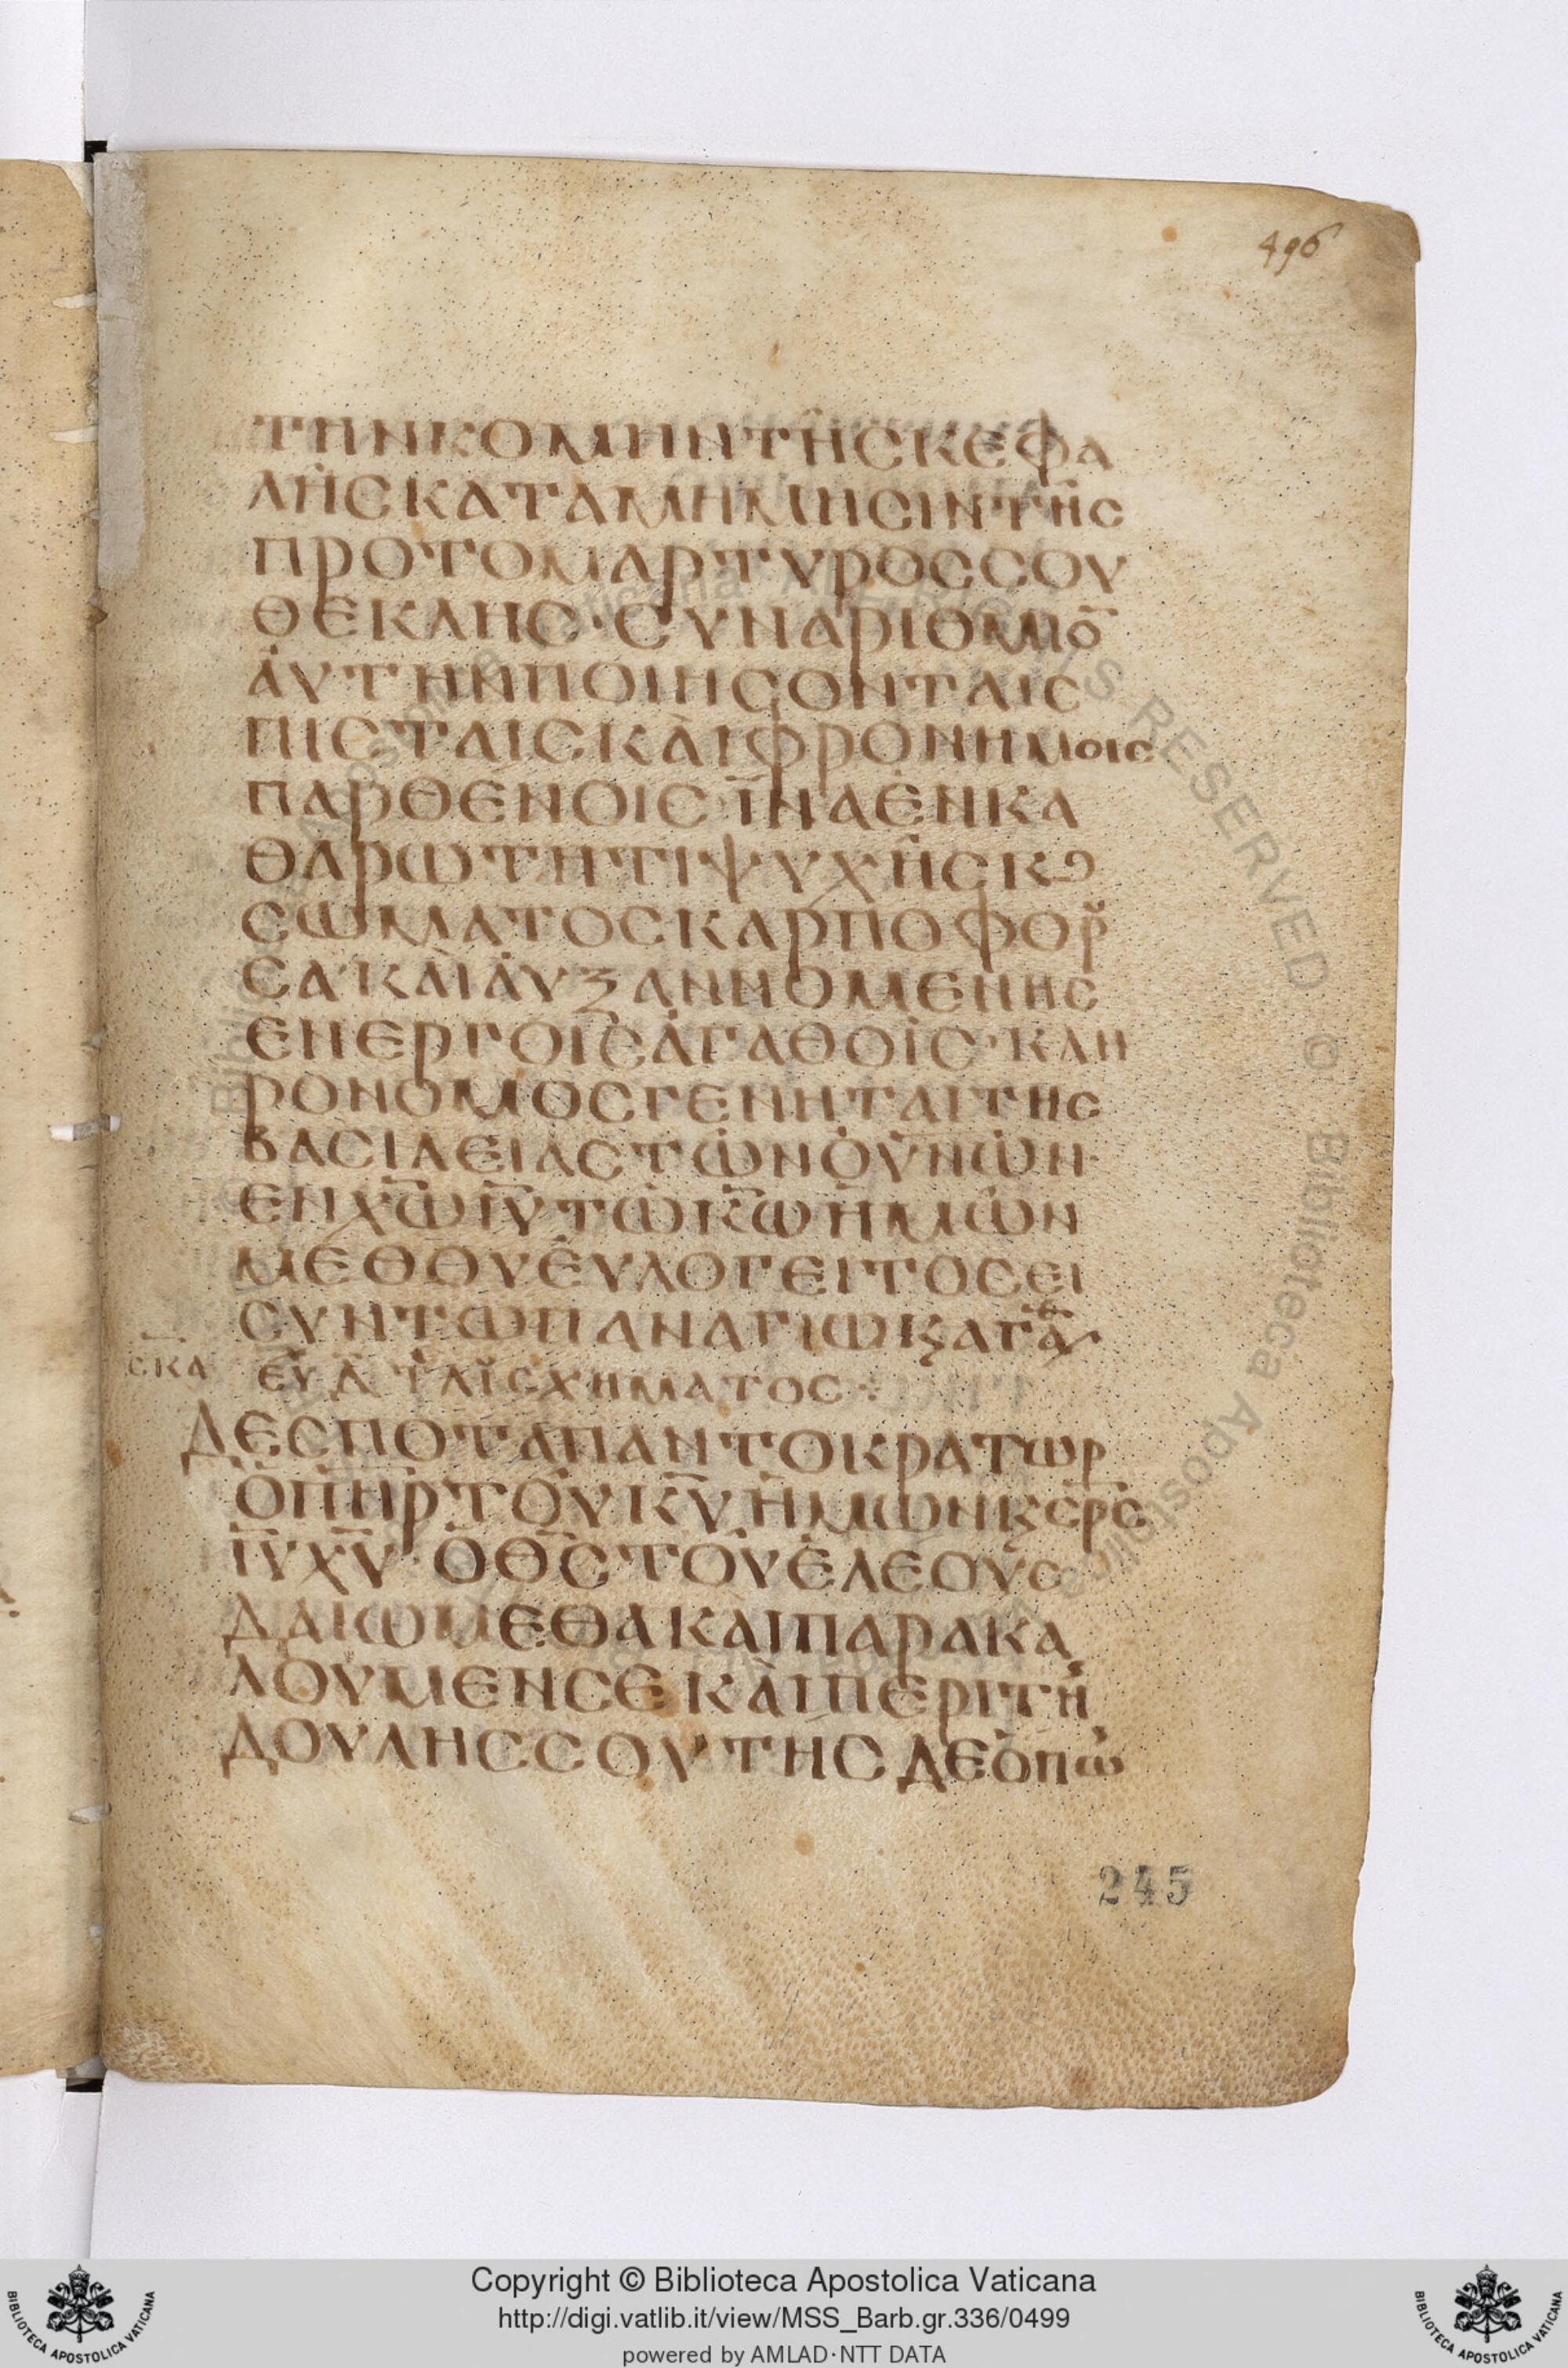 496
ΤΗΝΚΟΜΗΝΤΗ͂ΣΚΕΦΑ
ΛΗ͂ΣΚΑΤΑΜΗΜΗΣΙΝΤΗ͂Σ
ΠΡΟΤΟΜΑΡΤΥΡΟΣΣΟΥ
ΘΕΚΛΗΣ·ΣΥΝΑΡΙΘΜΙΟ̄
ἈΥΤΗΝΠΟΙΗΣΟΝΤΑΙΣ
ΠΙΣΤΑΙΣΚΑῚΦΡΟΝΗΜΟΙΣ
ΠΑΡΘΕΝΟΙΣ ΙΝΑΕΝΚΑ
ΘΑΡΩΤΗΤΙΨΥΧΗ͂ΣΚϽ
ΣΩΜΑΤΟΣΚΑΡΠΟΦΟΡ
ΣΑ·ΚΑῚἈΥΞΑΝΝΟΜΕΝΗΣ
ΕΝΕΡΓΟΙΣἈΓΑΘΟΙΣ·ΚΛΗ
ΡΟΝΟΜΟΣΓΕΝΗΤΑΙΤΗΣ
ΒΑΣΙΛΕΙΑΣΤΩΝΟΥ̅Ν̅ΩΝ·
ΕΝΧ̅Ω̅Ι̅Υ̅ΤΩΚ̅Ω̅ΗΜΩΝ
ΜΕΘΟΥΕΥΛΟΓΕΙΤΟΣΕΙ
ΣΥΝΤΩΠΑΝΑΓΙΩΚϚΑΓΑ
ΣΚΑ ΕΥΧ ΤΑΙΣΧΗΜΑΤΟΣ:
ΔΕΣΠΟΤΑΠΑΝΤΟΚΡΑΤΩΡ
ὉΠ̅Η̅Ρ̅ΤΟΥΚ̅Υ̅ΗΜΩΝΚϚΣ̅Ρ̅Σ̅
Ι̅Υ̅Χ̅Υ̅·ὉΘ̅Σ̅ΤΟΥΕΛΕΟΥΣ
ΔΑΙΩΜΕΘΑΚΑΙΠΑΡΑΚΑ
ΛΟΥΜΕΝΣΕΚΑῚΠΕΡΙΤΗ
ΔΟΥΛΗΣΣΟΥΤΗΣΔΕΟΠΩ
245
Copyright © Biblioteca Apostolica Vaticana
http://digi.vatlib.it/view/MSS_Barb.gr.336/0499
powered by AMLAD·NTT DATA
BIBLIOTECA APOSTOLICA VATICANA
BIBLIOTECA APOSTOLICA VATICANA